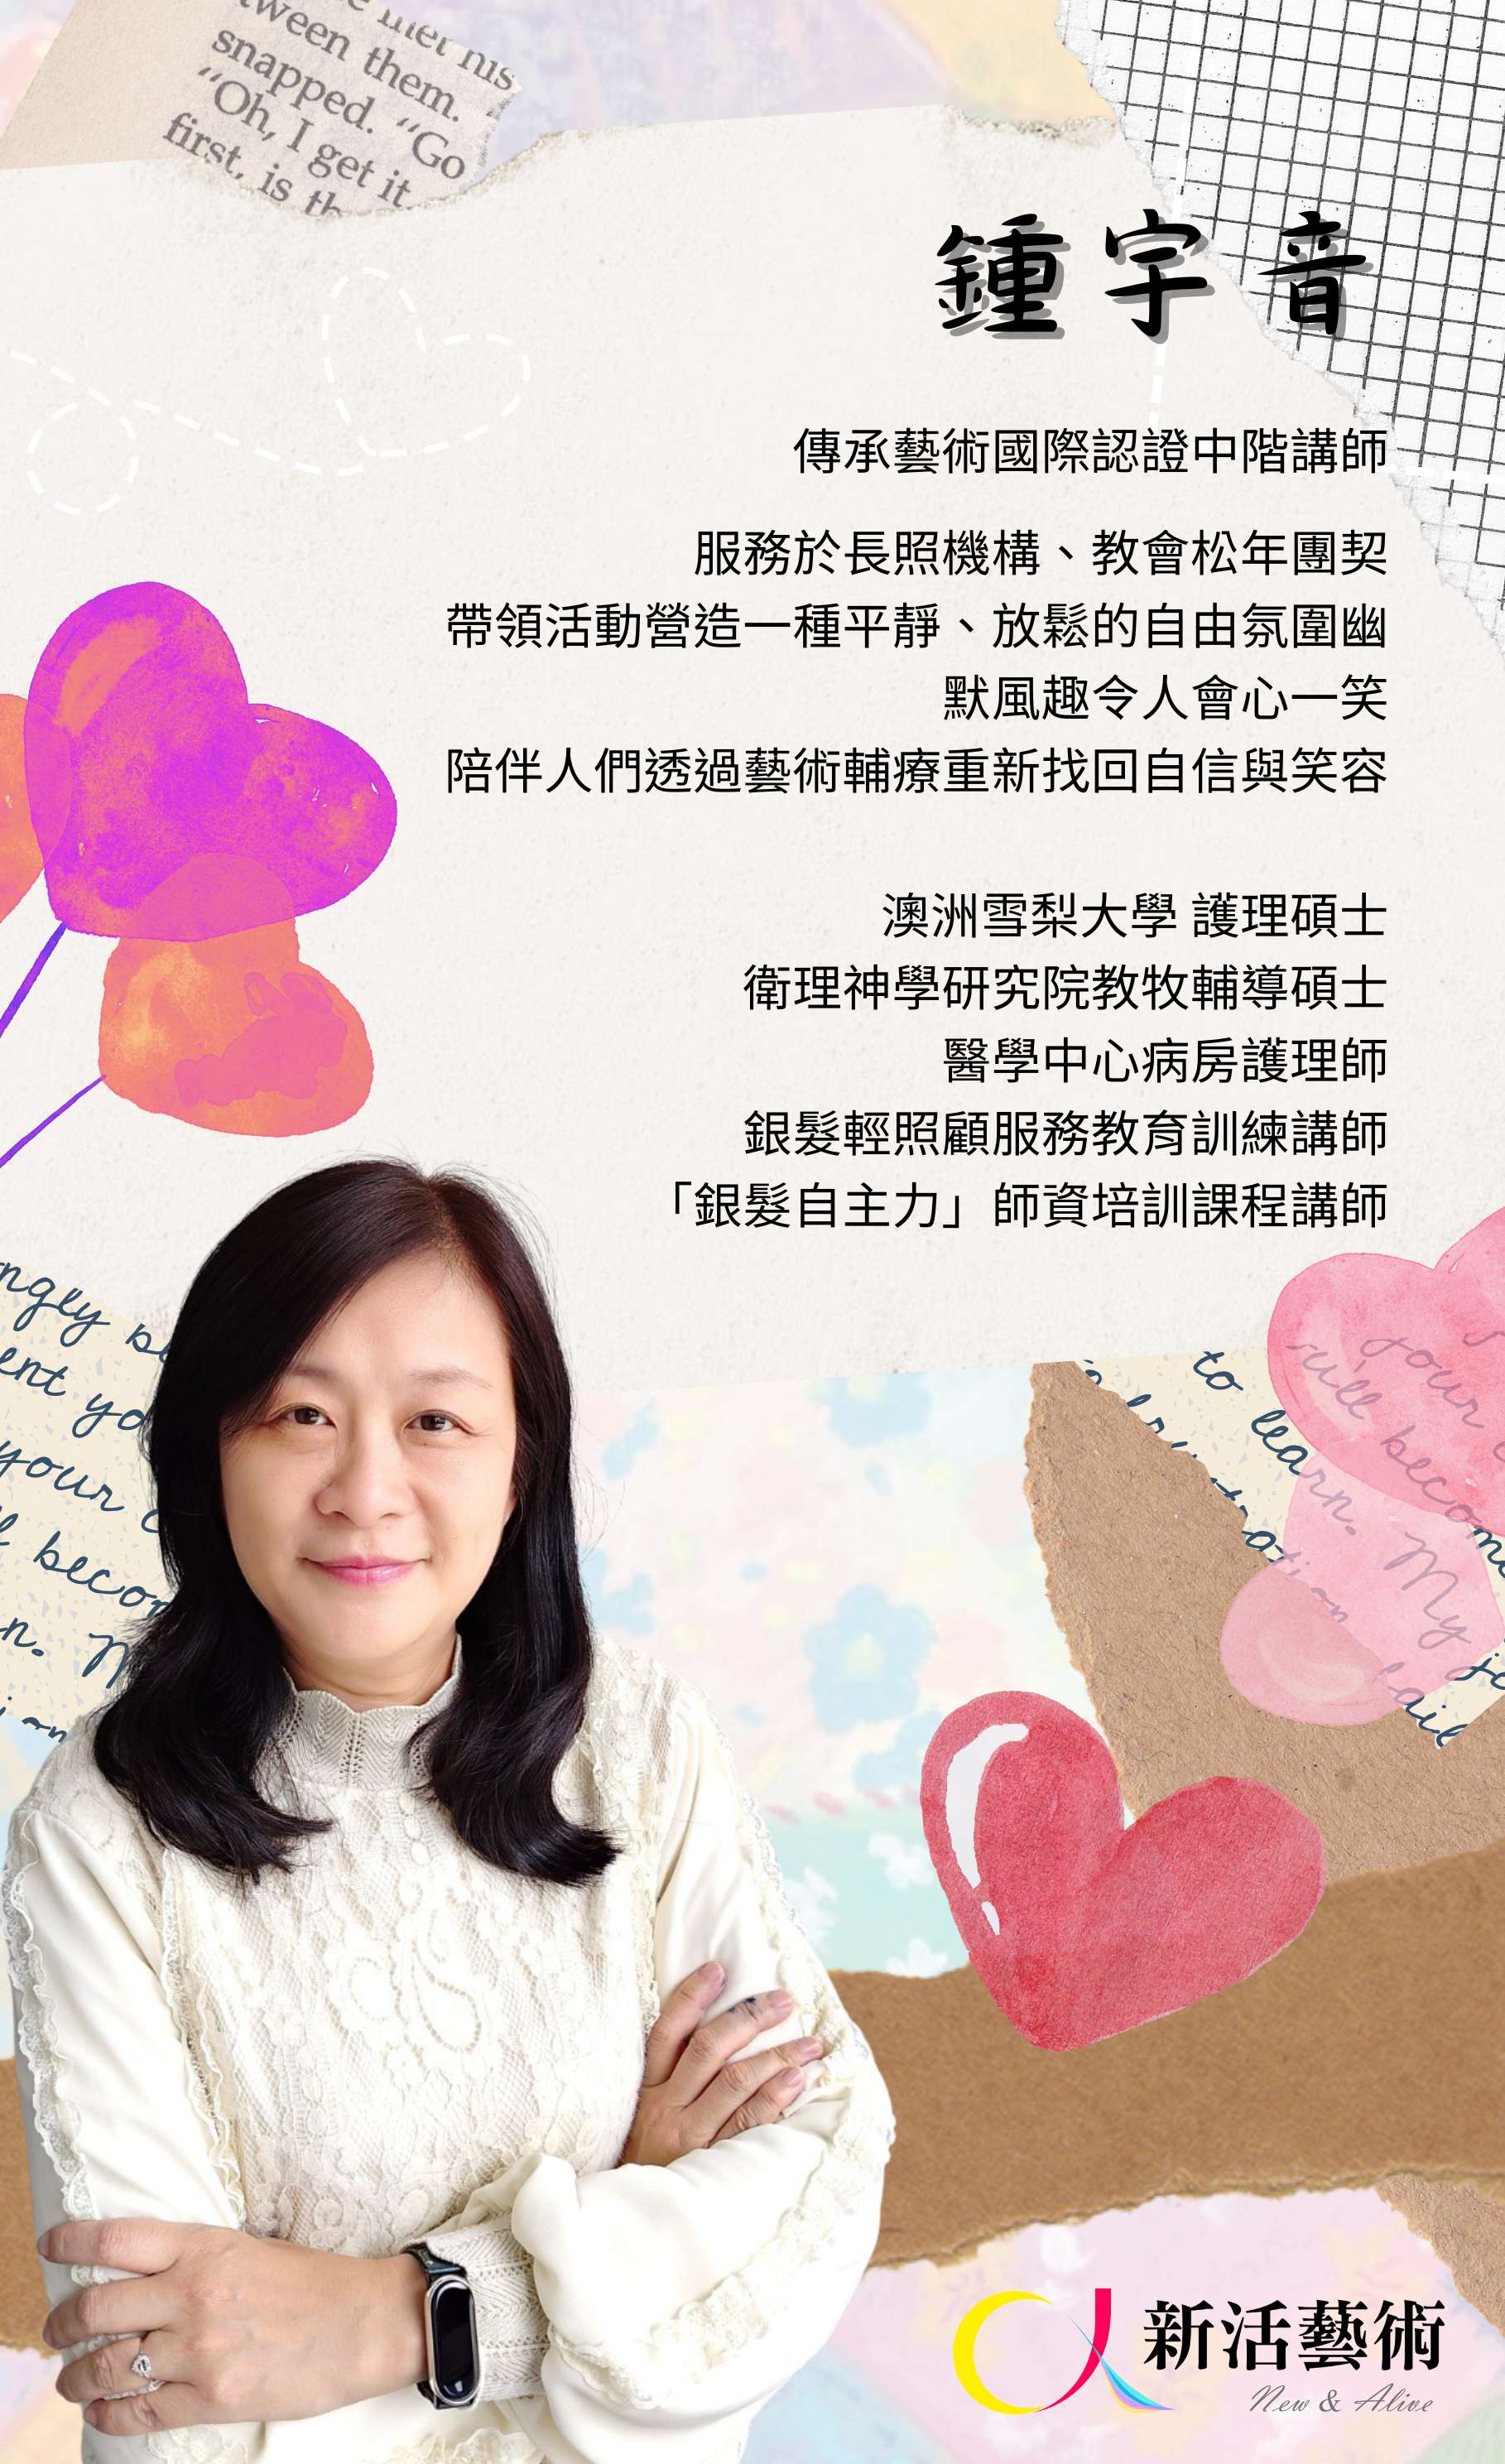 tween them.
snapped. "Go
"Oh, I get it.
first, is th
鍾宇音
傳承藝術國際認證中階講師
服務於長照機構、教會松年團契
帶領活動營造一種平靜、放鬆的自由氛圍幽
默風趣令人會心一笑
陪伴人們透過藝術輔療重新找回自信與笑容
澳洲雪梨大學 護理碩士
衛理神學研究院教牧輔導碩士
醫學中心病房護理師
銀髮輕照顧服務教育訓練講師
「銀髮自主力」師資培訓課程講師
ngly b
ent yo
your c
becom
n. M
to learn. My jo
your
will become
新活藝術
New & Alive